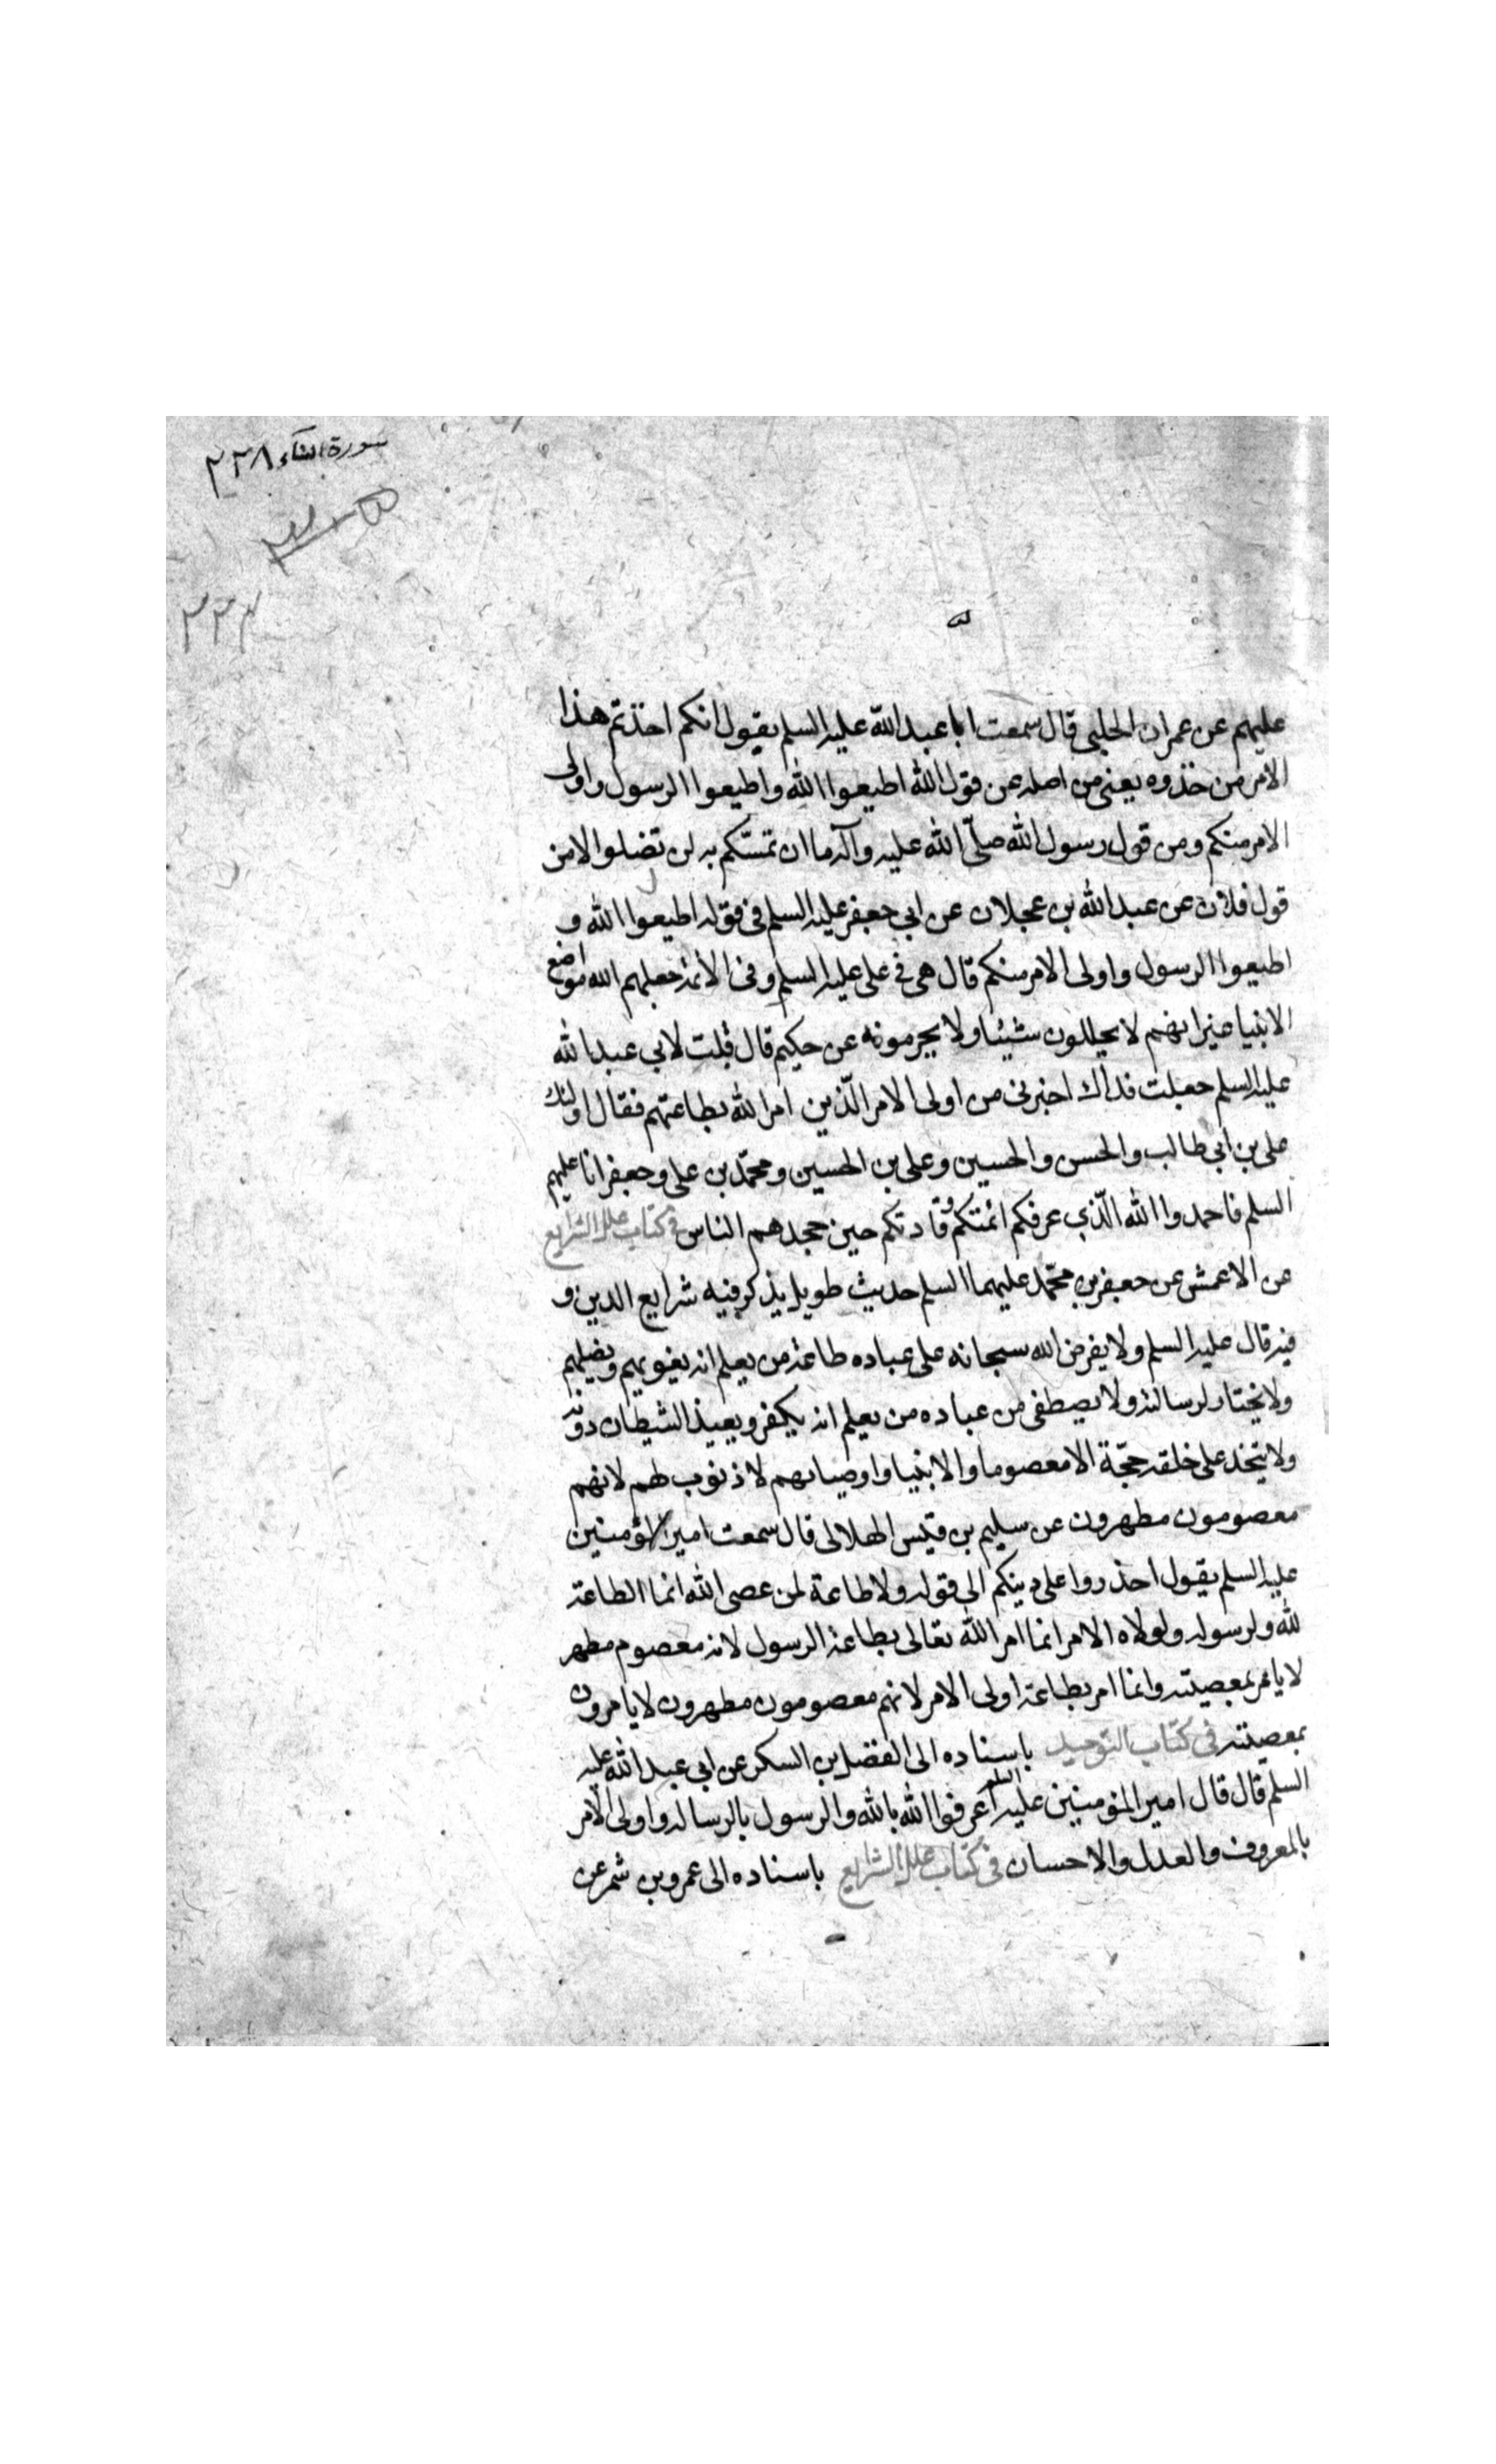 سورة النساء ٢٣٨
٢٣٧
عليهم عن عمران الحلبى قال سمعت ابا عبد الله عليه السلم يقول انكم اخذتم هذا
الامر من حذوه يعنى من اصله عن قول الله اطيعوا الله واطيعوا الرسول واولى
الامر منكم ومن قول رسول الله صلّى الله عليه وآله ما ان تمسّكتم به لن تضلوا لا من
قول فلان عن عبد الله بن عجلان عن ابي جعفر عليه السلم فى قوله اطيعوا الله و
اطيعوا الرسول واولى الامر منكم قال هى فى على عليه السلم وفى الائمة جعلهم الله مواضع
الانبيا غير انهم لا يحللون شيئا ولا يحرمونه عن حكيم قال قلت لابي عبد الله
عليه السلم جعلت فداك اخبرنى من اولى الامر الّذين امر الله بطاعتهم فقال اولئك
على بن ابى طالب والحسن والحسين وعلى بن الحسين ومحمّد بن على وجعفر انا عليهم
السلم فاحمدوا الله الّذي عرفكم ائمتكم وقادتكم حين جحدهم الناس فى كتاب علل الشرايع
عن الاعمش عن جعفر بن محمّد عليهما السلم حديث طويل يذكر فيه شرايع الدين و
فيه قال عليه السلم ولا يفرض الله سبحانه على عباده طاعة من يعلم انه يغويهم ويضلهم
ولا يختار لرسالته ولا يصطفى من عباده من يعلم انه يكفر ويعبد الشيطان دونه
ولا يتخذ على خلقه حجّة الا معصوما والانبيا واوصيائهم لا ذنوب لهم لانهم
معصومون مطهرون عن سليم بن قيس الهلالى قال سمعت امير المؤمنين
عليه السلم يقول احذروا على دينكم الى قوله ولا طاعة لمن عصى الله انما الطاعة
لله ولرسوله ولولاه الامر انما امر الله تعالى بطاعة الرسول لانه معصوم مطهر
لا يامر بمعصيته وانما امر بطاعة اولى الامر لانهم معصومون مطهرون لا يامرون
بمعصيته فى كتاب التوحيد باسناده الى الفضل بن السكر عن ابى عبد الله عليه
السلم قال قال امير المؤمنين عليه السلم اعرفوا الله بالله والرسول بالرساله واولى الامر
بالمعروف والعدل والاحسان فى كتاب علل الشرايع باسناده الى عمرو بن شمر عن